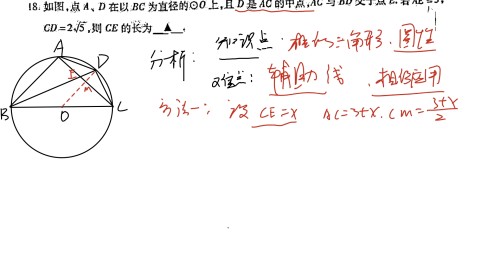 18. 如图,点 A、D 在以 BC 为直径的⊙O 上,且 D 是 AC 的中点,AC 与 BD 交于点 E.若 AE=3,
CD=2√5,则 CE 的长为 ▲ .
分析: 知识点: 相似三角形. 圆性
难点: 辅助线. 相似应用
方法一: 设 CE=x AC=3+x. CM=3+x/2
A
E D
M
B O C